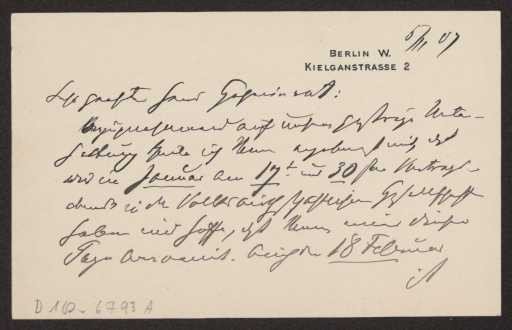 5/XI 07
BERLIN W.
KIELGANSTRASSE 2
Sehr geehrter Herr Geheimrat:
Bezugnehmend auf unsere gestrige Unter-
haltung teile ich Ihnen ergebenst mit, daß
wir im Januar am 17t und 30 freie Vortrags-
in der Volkswirtschaftlichen Gesellschaft
haben und hoffe, daß Ihnen einer dieser
Tage convenirt. Auch den 18 Februar
D 102 - 6793 A